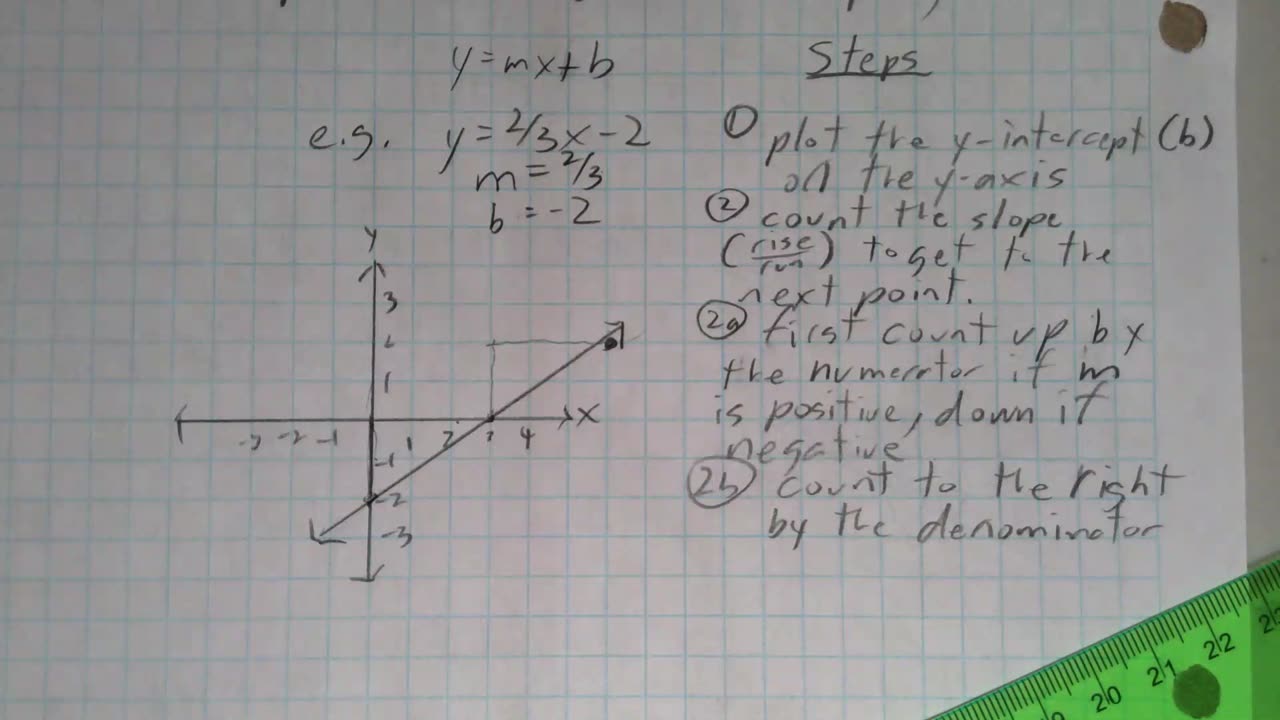 y = mx + b
e.g. y = 2/3x - 2
m = 2/3
b = -2
Steps
① plot the y-intercept (b)
on the y-axis
② count the slope
(rise/run) to get to the
next point.
2a first count up by
the numerator if m
is positive, down if
negative
2b count to the right
by the denominator
y
3
2
1
x
-3 -2 -1 1 2 3 4
-1
-2
-3
20 21 22